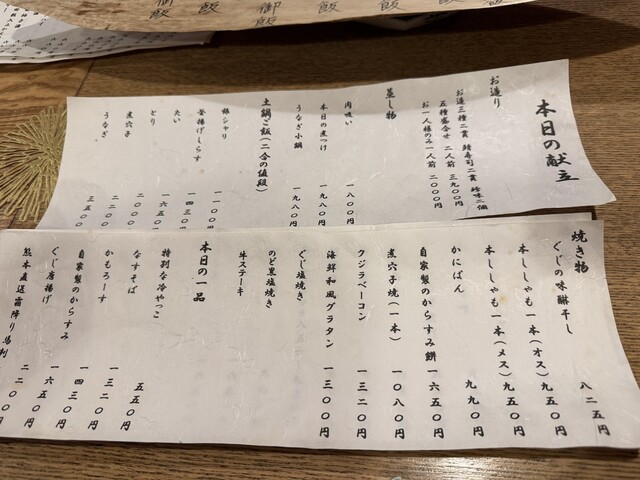 御飯
飯
御飯
飯
飯
飯
本日の献立
お造り
お造三種二貫 鯖寿司二貫 珍味二個
五種盛合せ 二人前 三九〇〇円
お一人様のみ一人前 二〇〇〇円
蒸し物
肉味い 一八〇〇円
本日の煮つけ 一九八〇円
うなぎ小鍋 一九八〇円
土鍋ご飯(二合の値段)
銀シャリ 一一〇〇円
釜揚げしらす 一四三〇円
たい 一六五〇円
とり 二〇〇〇円
煮穴子 二二〇〇円
うなぎ 三五〇〇
焼き物
ぐじの味醂干し 八二五円
本ししゃも一本(オス) 九五〇円
本ししゃも一本(メス) 九五〇円
かにばん 九九〇円
自家製のからすみ餅 一六五〇円
煮穴子焼(一本) 一〇八〇円
クジラベーコン 一三二〇円
海鮮和風グラタン 一三〇〇円
ぐじ塩焼き
のど黒塩焼き
牛ステーキ
本日の一品
特別な冷やっこ
なすそば 五五〇円
かもろーす 一三二〇円
自家製のからすみ 一四三〇円
ぐじ唐揚げ 一六五〇円
熊本直送霜降り馬刺 二二〇〇円